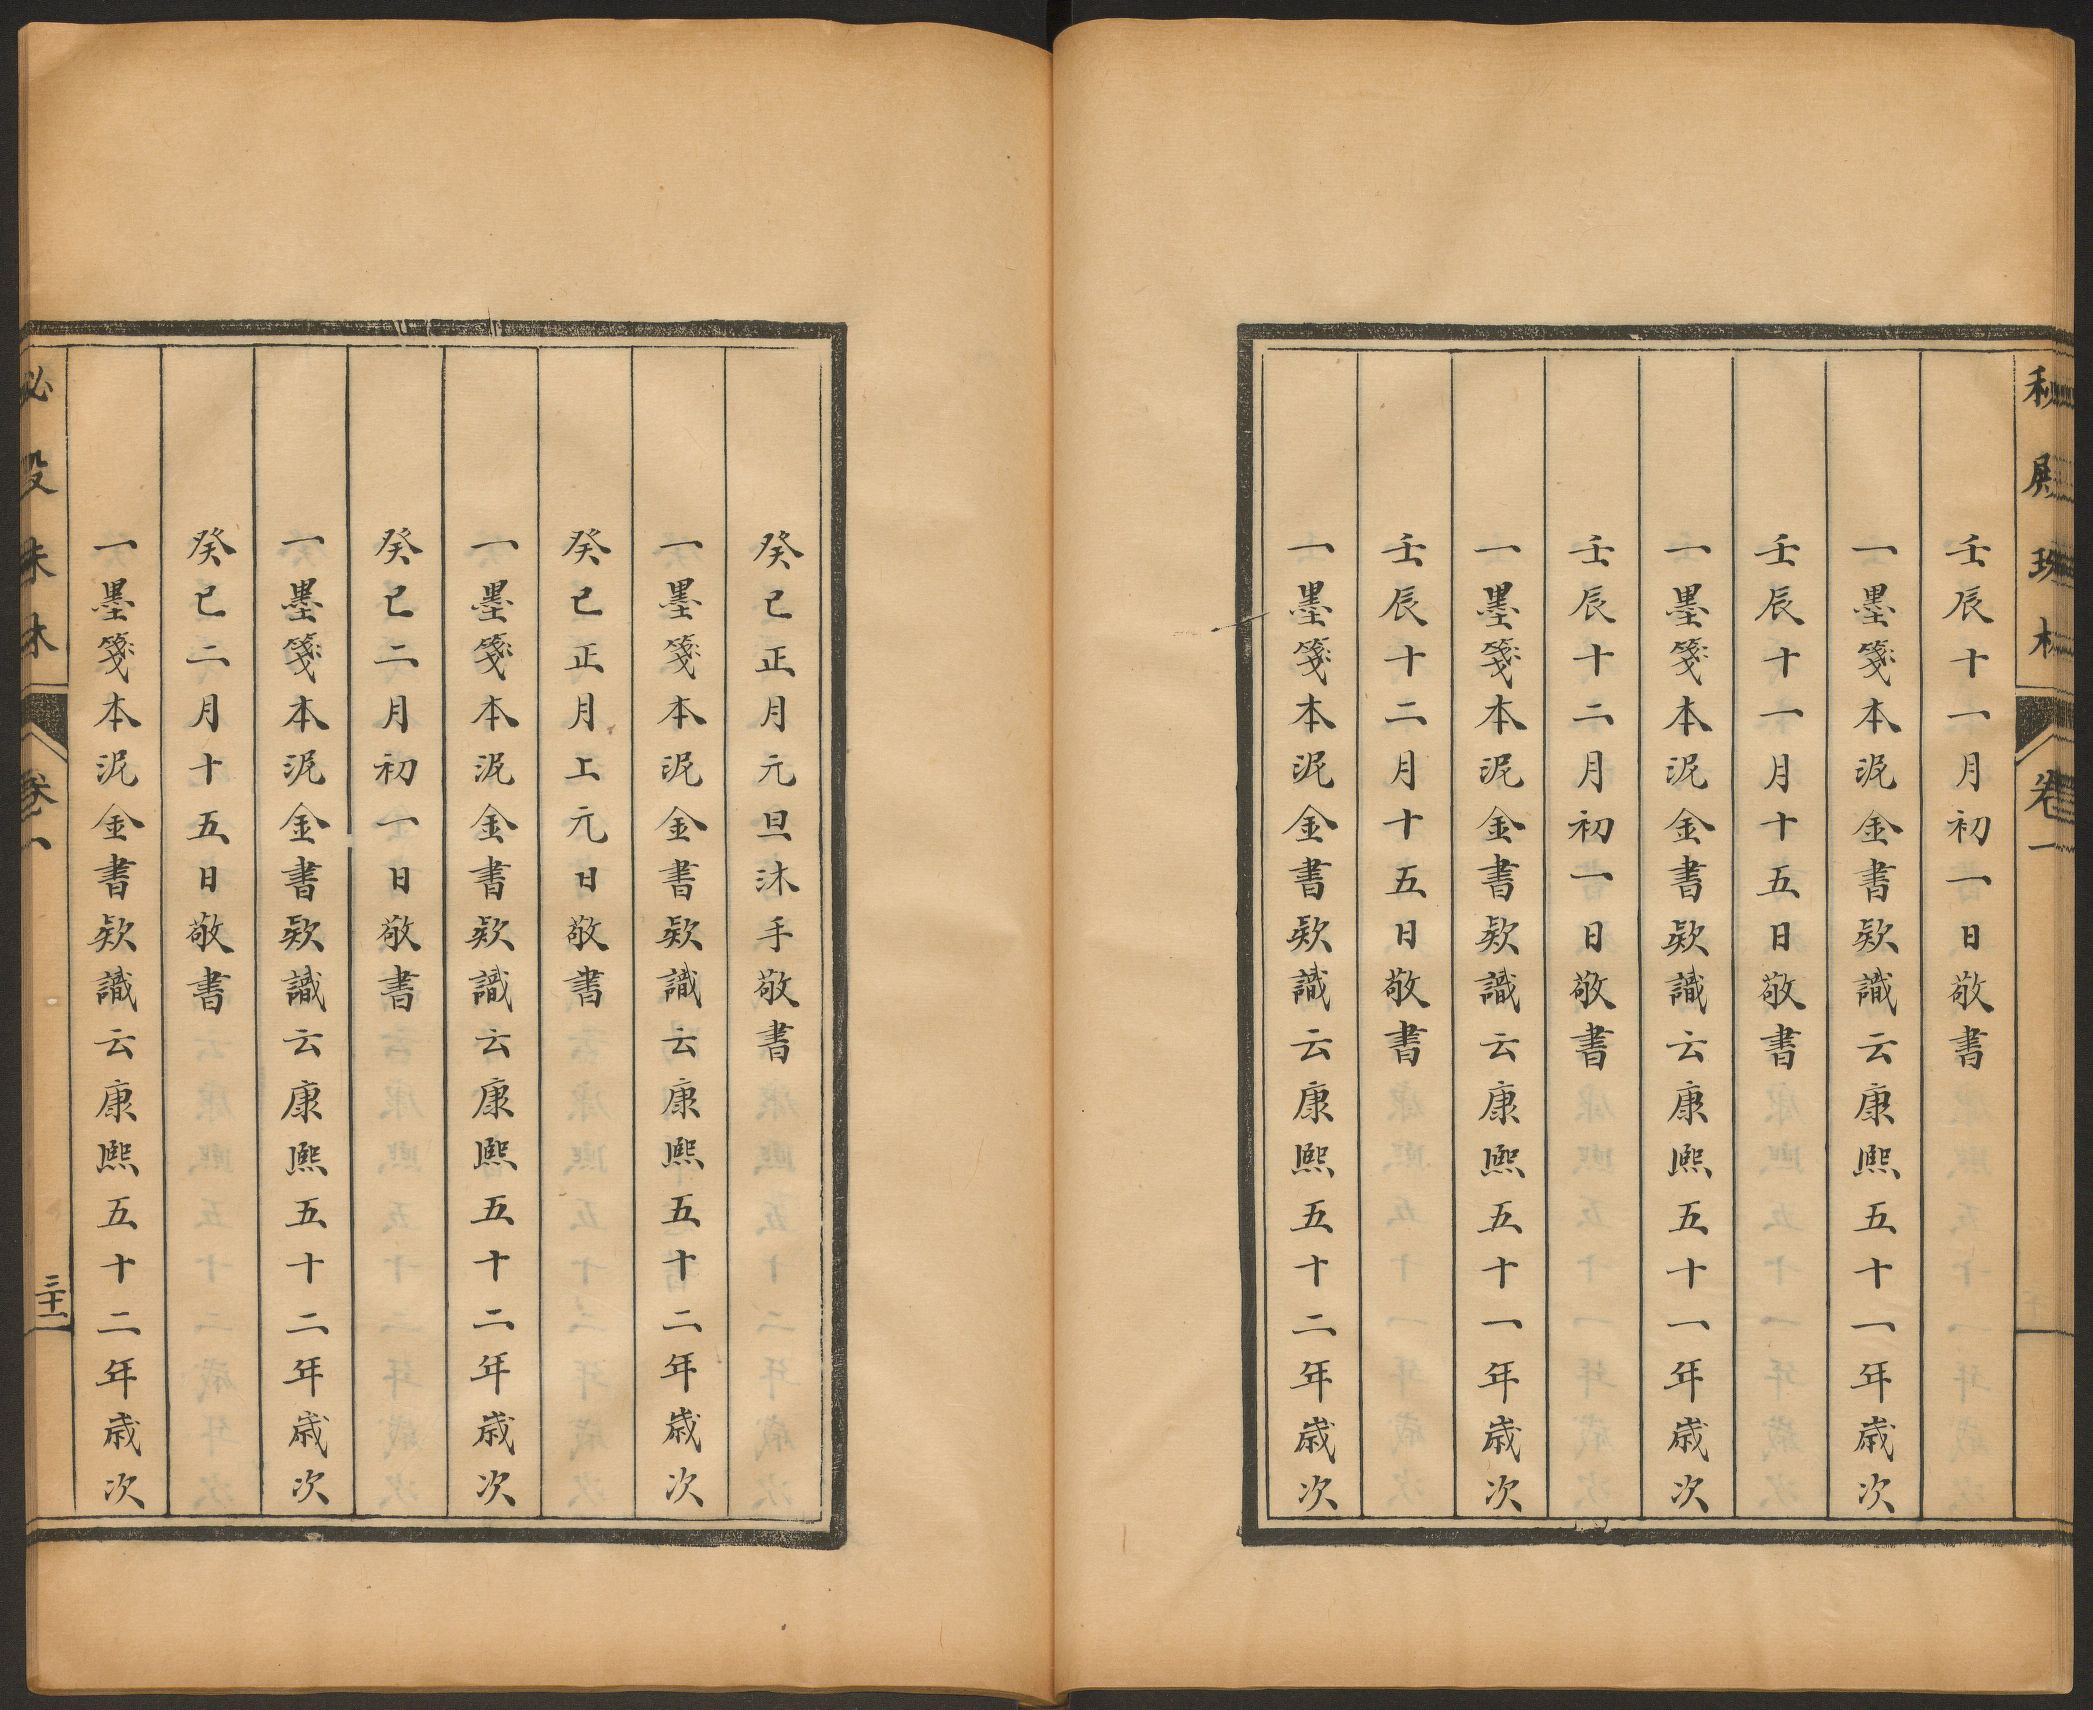 秘殿珠林 卷一
壬辰十一月初一日敬書
一墨箋本泥金書款識云康熙五十一年歲次
壬辰十一月十五日敬書
一墨箋本泥金書款識云康熙五十一年歲次
壬辰十二月初一日敬書
一墨箋本泥金書款識云康熙五十一年歲次
壬辰十二月十五日敬書
一墨箋本泥金書款識云康熙五十二年歲次
癸巳正月元旦沐手敬書
一墨箋本泥金書款識云康熙五十二年歲次
癸巳正月上元日敬書
一墨箋本泥金書款識云康熙五十二年歲次
癸巳二月初一日敬書
一墨箋本泥金書款識云康熙五十二年歲次
癸巳二月十五日敬書
一墨箋本泥金書款識云康熙五十二年歲次
秘殿珠林 卷一 三十一